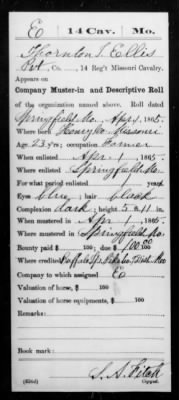 Eo 14 Cav. Mo.
Thornton J. Ellis
Pvt, Co. , 14 Reg't Missouri Cavalry.
Appears on
Company Muster-in and Descriptive Roll
of the organization named above. Roll dated
Springfield Mo. Apr 1, 1865.
Where born Henry Co. Missouri
Age 23 y'rs; occupation Farmer
When enlisted Apr. 1, 1865.
Where enlisted Springfield Mo.
For what period enlisted years.
Eyes blue; hair black
Complexion dark; height 5 ft. 11 in.
When mustered in Apr 1, 1865.
Where mustered in Springfield Mo.
Bounty paid $ 100; due $ 100 00/100
Where credited Buffalo
Company to which assigned Eo
Valuation of horse, $ 100
Valuation of horse equipments, $ 100
Remarks:
Book mark:
S. A. Fitch
Copyist.